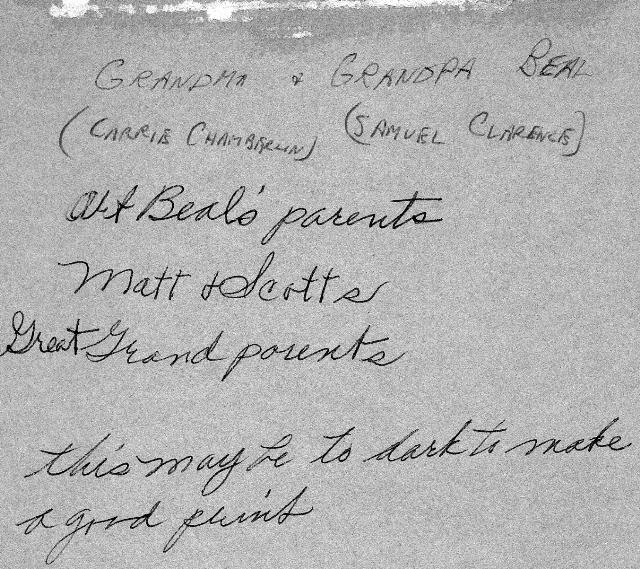 GRANDMA & GRANDPA BEAL
(CARRIE CHAMBERLIN) (SAMUEL CLARENCE)
Art Beal's parents
Matt & Scotts
Great Grand parents
this may be to dark to make
a good print